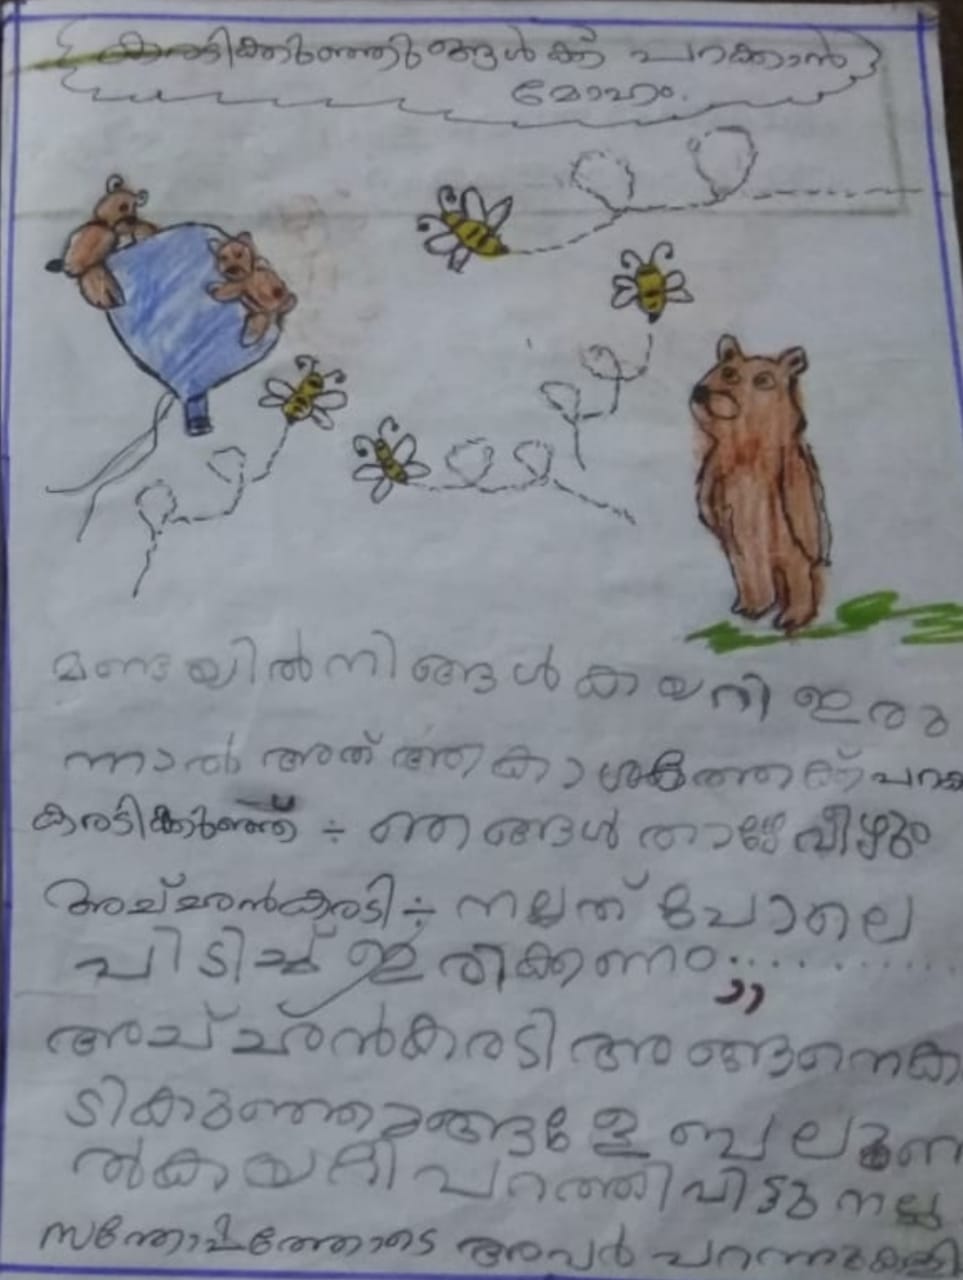 കരടിക്കുഞ്ഞുങ്ങൾക്ക് പറക്കാൻ
മോഹം.
മണ്ടയിൽ നിങ്ങൾ കയറി ഇരു
ന്നാൽ അത് ആകാശത്തേക്ക് പറക
കരടിക്കുഞ്ഞ് ÷ ഞങ്ങൾ താഴേ വീഴും
അച്ഛൻകരടി ÷ നല്ലത് പോലെ
പിടിച്ച് ഇരിക്കണം..............."
അച്ഛൻകരടി അങ്ങനെ ക
ടികുഞ്ഞുങ്ങളേ ബലൂണ
ൽ കയറ്റി പറത്തി വിട്ടു നല്ല
സന്തോഷത്തോടെ അവർ പറന്നു